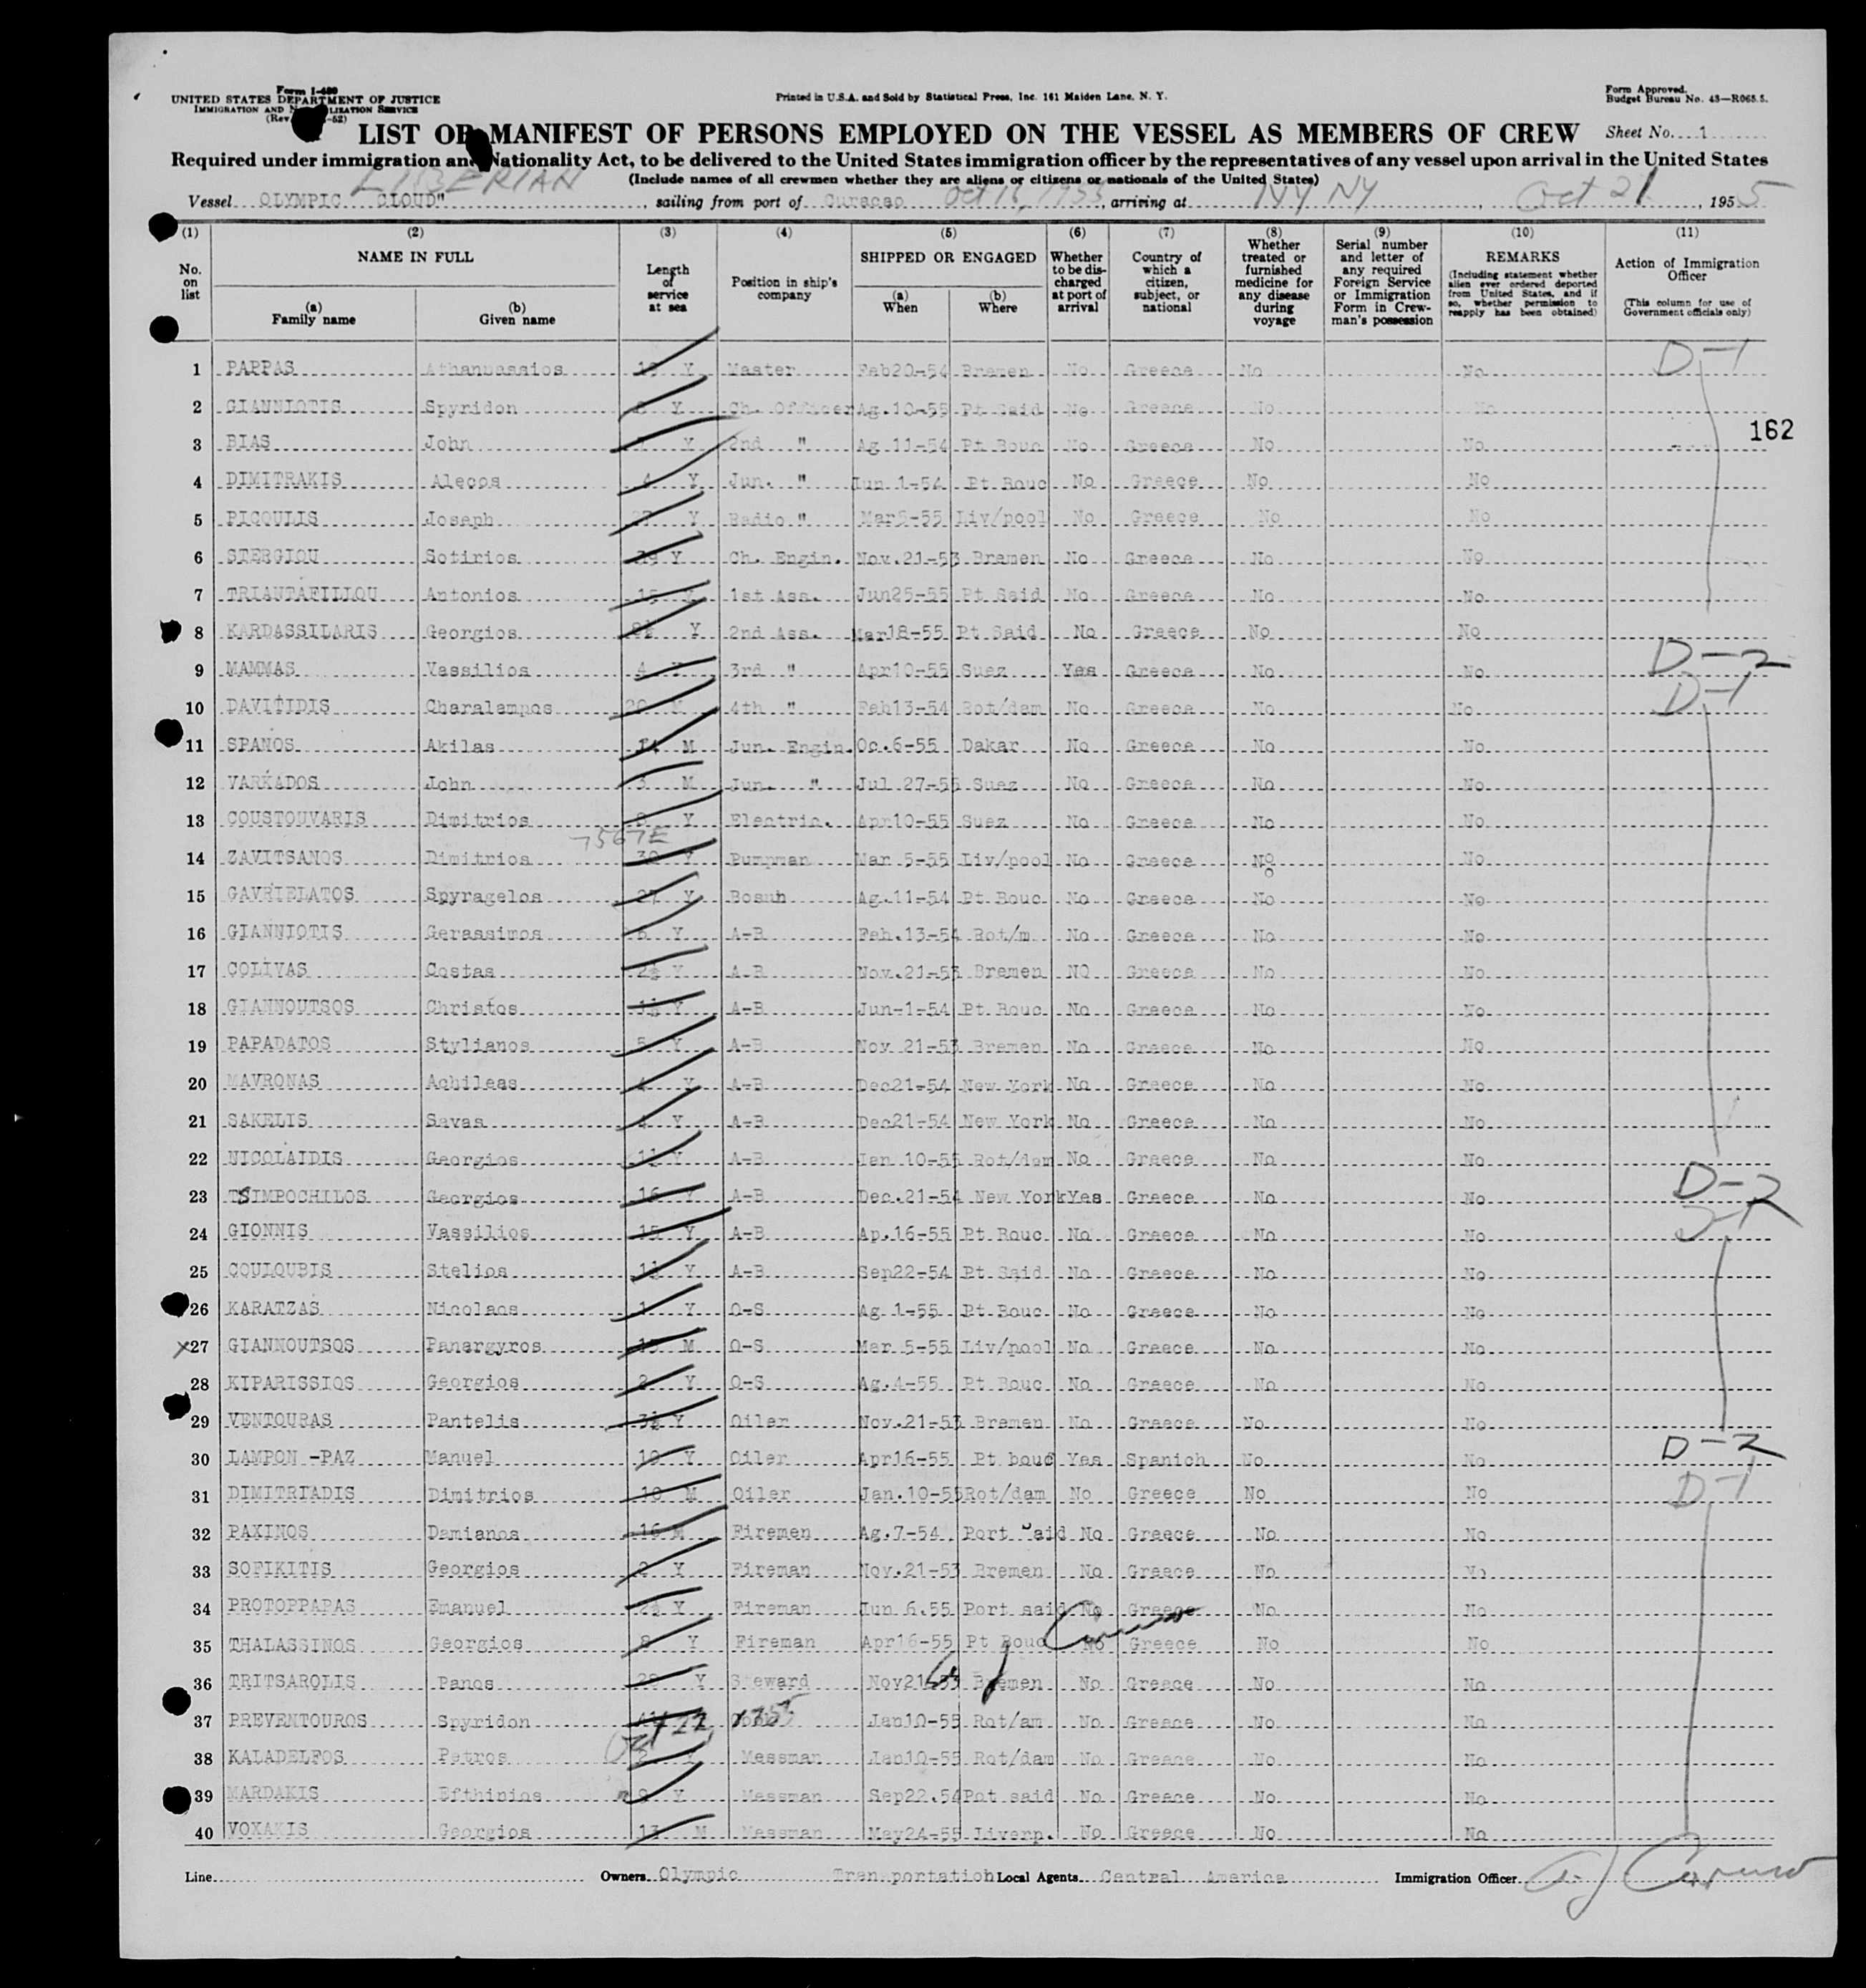 Form I-480
UNITED STATES DEPARTMENT OF JUSTICE
IMMIGRATION AND NATURALIZATION SERVICE
(Rev. -52)
Printed in U.S.A. and Sold by Statistical Press, Inc. 161 Maiden Lane, N. Y.
Form Approved.
Budget Bureau No. 43—R065.5.
LIST OR MANIFEST OF PERSONS EMPLOYED ON THE VESSEL AS MEMBERS OF CREW Sheet No. 1
Required under immigration and Nationality Act, to be delivered to the United States immigration officer by the representatives of any vessel upon arrival in the United States
(Include names of all crewmen whether they are aliens or citizens or nationals of the United States)
LIBERIAN
Vessel OLYMPIC CLOUD", sailing from port of Curacao Oct 16, 1955, arriving at NY NY, Oct 21, 1955
(1) (2) (3) (4) (5) (6) (7) (8) (9) (10) (11)
No. on list
NAME IN FULL
(a) Family name
(b) Given name
Length of service at sea
Position in ship's company
SHIPPED OR ENGAGED
(a) When
(b) Where
Whether to be discharged at port of arrival
Country of which a citizen, subject, or national
Whether treated or furnished medicine for any disease during voyage
Serial number and letter of any required Foreign Service or Immigration Form in Crewman's possession
REMARKS
(Including statement whether alien ever ordered deported from United States, and if so, whether permission to reapply has been obtained)
Action of Immigration Officer
(This column for use of Government officials only)
1 PAPPAS Athanuassios Y Master Feb20-54 Bremen No Greece No No D-1
2 GIANNIOTIS Spyridon Y Ch. Officer Ag.10-55 Pt Said No Greece No No
162
3 BIAS John Y 2nd " Ag 11-54 Pt Bouc No Greece No No
4 DIMITRAKIS Alecos 4 Y Jun. " Jun 1-54 Pt Bouc No Greece No No
5 PICOULIS Joseph Y Radio " Mar5-55 Liv/pool No Greece No No
6 STERGIOU Sotirios 39 Y Ch. Engin. Nov.21-53 Bremen No Greece No No
7 TRIANTAFILLOU Antonios 15 Y 1st Ass. Jun25-55 Pt Said No Greece No No
8 KARDASSILARIS Georgios Y 2nd Ass. Mar18-55 Pt Said No Greece No No
9 MAMMAS Vassilios 4 Y 3rd " Apr10-55 Suez Yes Greece No No D-2
10 DAVITIDIS Charalampos 20 M 4th " Feb13-54 Rot/dam No Greece No No D-1
11 SPANOS Akilas 14 M Jun. Engin. Oc.6-55 Dakar No Greece No No
12 VARKADOS John 3 M Jun. " Jul 27-55 Suez No Greece No No
13 COUSTOUVARIS Dimitrios Y Electric. Apr10-55 Suez No Greece No No
7567E
14 ZAVITSANOS Dimitrios 30 Y Pumpman Mar 5-55 Liv/pool No Greece No No
15 GAVRIELATOS Spyragelos 27 Y Bosun Ag.11-54 Pt Bouc No Greece No No
16 GIANNIOTIS Gerassimos 6 Y A-B Feb.13-54 Rot/m No Greece No No
17 COLIVAS Costas 2½ Y A-B Nov.21-53 Bremen NO Greece No No
18 GIANNOUTSOS Christos Y A-B Jun-1-54 Pt Bouc No Greece No No
19 PAPADATOS Stylianos 5 Y A-B Nov 21-53 Bremen No Greece No No
20 MAVRONAS Achileas 4 Y A-B Dec21-54 New York No Greece No No
21 SAKELIS Savas 4 Y A-B Dec21-54 New York No Greece No No
22 NICOLAIDIS Georgios Y A-B Jan 10-55 Rot/dam No Greece No No
23 TSIMPOCHILOS Georgios 16 Y A-B Dec.21-54 New York Yes Greece No No D-2
24 GIONNIS Vassilios 15 Y A-B Ap.16-55 Pt Bouc No Greece No No
25 COULOUBIS Stelios Y A-B Sep22-54 Pt Said No Greece No No
26 KARATZAS Nicolaos 1 Y O-S Ag 1-55 Pt Bouc No Greece No No
x27 GIANNOUTSOS Panargyros M O-S Mar 5-55 Liv/pool No Greece No No
28 KIPARISSIOS Georgios 2 Y O-S Ag.4-55 Pt Bouc No Greece No No
29 VENTOURAS Pantelis 3½ Y Oiler Nov.21-53 Bremen No Greece No No
30 LAMPON -PAZ Manuel 10 Y Oiler Apr16-55 Pt bouc Yes Spanich No No D-2
31 DIMITRIADIS Dimitrios 10 M Oiler Jan.10-55 Rot/dam No Greece No No D-1
32 PAXINOS Damianos 16 M Firemen Ag.7-54 Port Said No Greece No No
33 SOFIKITIS Georgios 2 Y Fireman Nov.21-53 Bremen No Greece No No
34 PROTOPPAPAS Emanuel 2½ Y Fireman Jun 6.55 Port said No Greece No No
35 THALASSINOS Georgios 8 Y Fireman Apr16-55 Pt Bouc No Greece No No
36 TRITSAROLIS Panos Y Steward Nov21-53 Bremen No Greece No No
37 PREVENTOUROS Spyridon Jan10-55 Rot/am No Greece No No
38 KALADELFOS Petros Y Messman Jan10-55 Rot/dam No Greece No No
39 MARDAKIS Efthinios Y Messman Sep22.54 Pot said No Greece No No
40 VOXAKIS Georgios 13 M Messman May24-55 Liverp. No Greece No No
Line Owners Olympic Transportation Local Agents Central America Immigration Officer A J Caruso